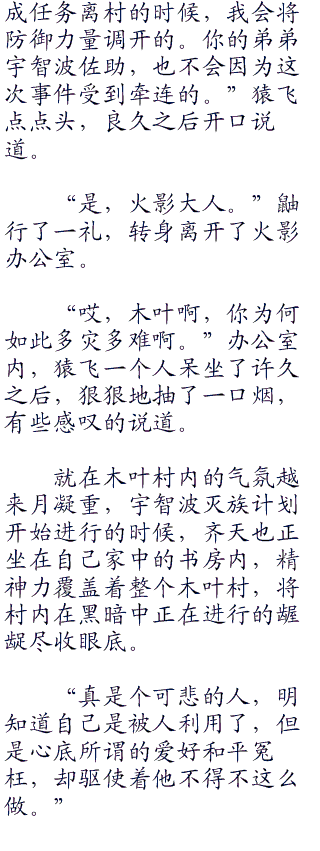 成任务离村的时候，我会将
防御力量调开的。你的弟弟
宇智波佐助，也不会因为这
次事件受到牵连的。”猿飞
点点头，良久之后开口说
道。
“是，火影大人。”鼬
行了一礼，转身离开了火影
办公室。
“哎，木叶啊，你为何
如此多灾多难啊。”办公室
内，猿飞一个人呆坐了许久
之后，狠狠地抽了一口烟，
有些感叹的说道。
就在木叶村内的气氛越
来月凝重，宇智波灭族计划
开始进行的时候，齐天也正
坐在自己家中的书房内，精
神力覆盖着整个木叶村，将
村内在黑暗中正在进行的龌
龊尽收眼底。
“真是个可悲的人，明
知道自己是被人利用了，但
是心底所谓的爱好和平冤
枉，却驱使着他不得不这么
做。”